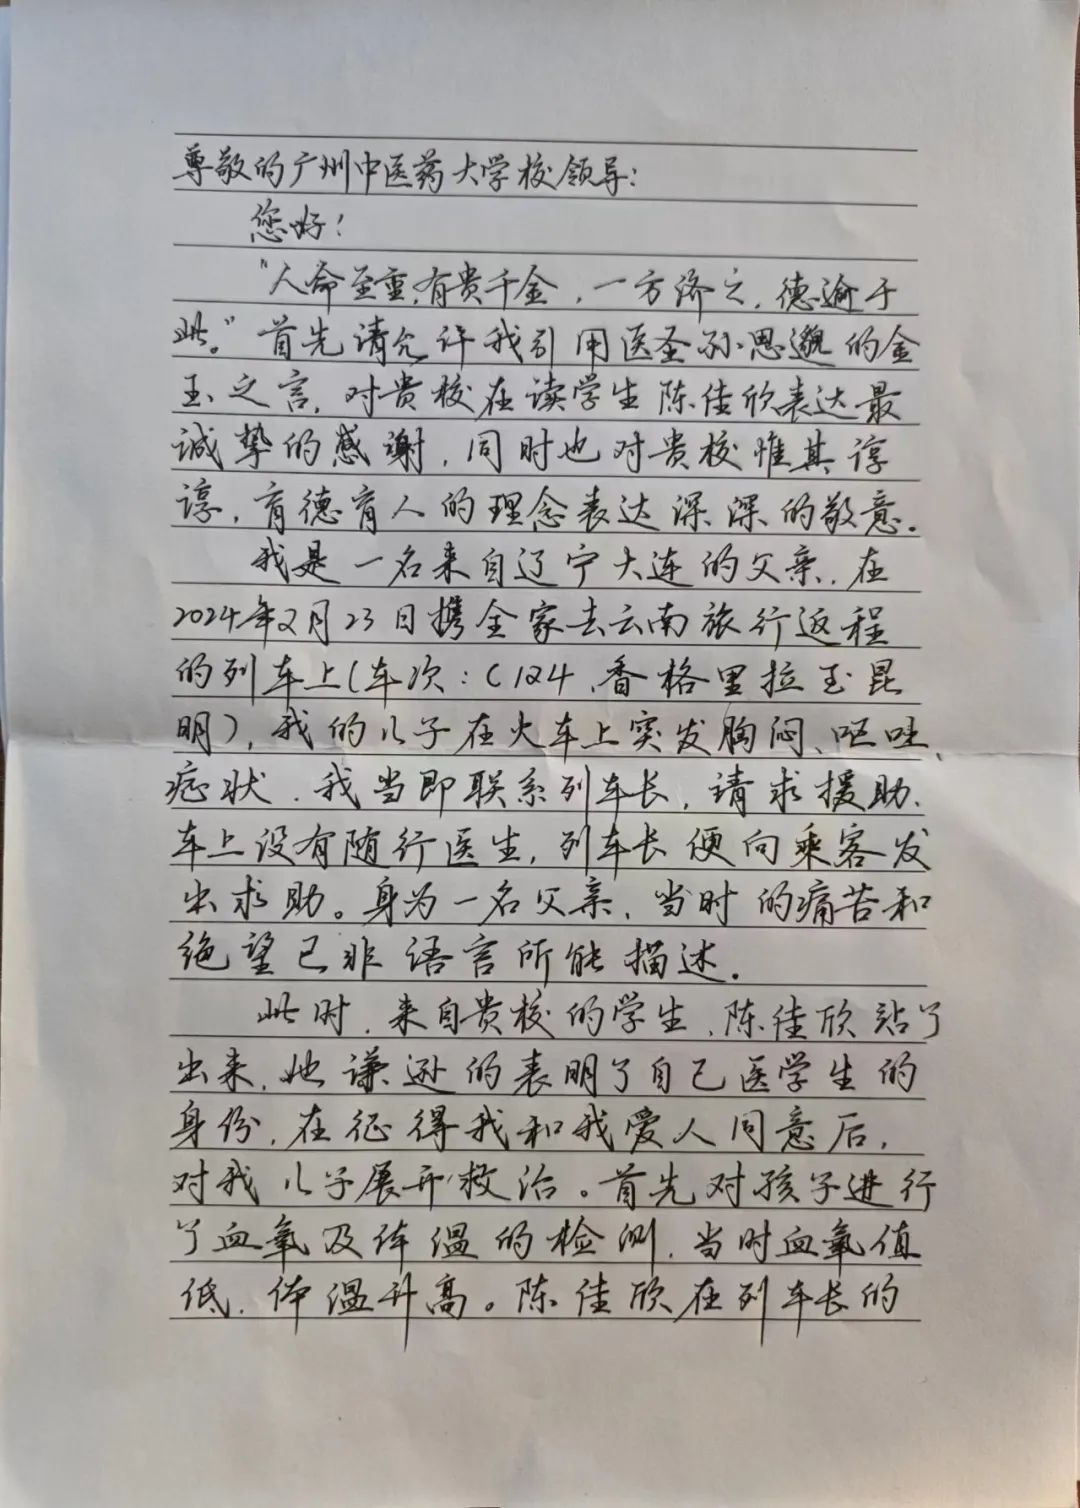 尊敬的广州中医药大学校领导：
您好！
“人命至重，有贵千金，一方济之，德逾于
此。”首先请允许我引用医圣孙思邈的金
玉之言，对贵校在读学生陈佳欣表达最
诚挚的感谢，同时也对贵校惟其谆
谆，育德育人的理念表达深深的敬意。
我是一名来自辽宁大连的父亲，在
2024年2月23日携全家去云南旅行返程
的列车上（车次：C124、香格里拉至昆
明），我的儿子在火车上突发胸闷、呕吐、
症状，我当即联系列车长，请求援助、
车上没有随行医生，列车长便向乘客发
出求助。身为一名父亲，当时的痛苦和
绝望已非语言所能描述。
此时，来自贵校的学生，陈佳欣站了
出来，她谦逊的表明了自己医学生的
身份，在征得我和我爱人同意后，
对我儿子展开救治。首先对孩子进行
了血氧及体温的检测，当时血氧值
低，体温升高。陈佳欣在列车长的